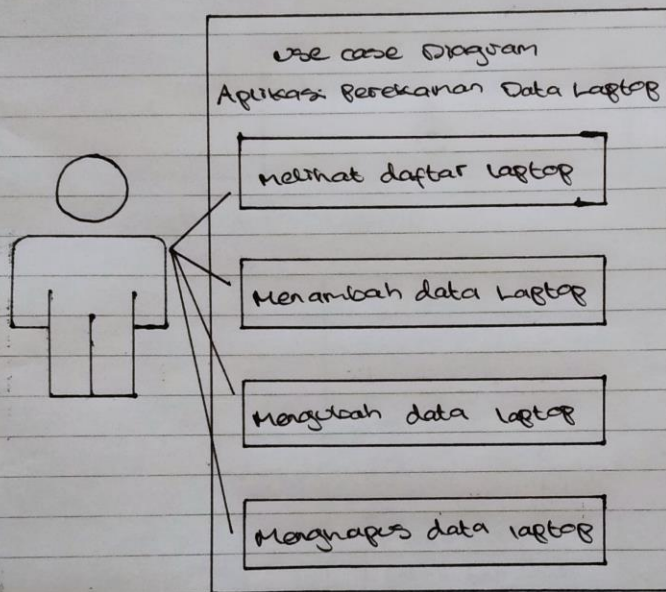 Use case Diagram
Aplikasi Perekaman Data Laptop
Melihat daftar laptop
Menambah data Laptop
Mengubah data laptop
Menghapus data laptop